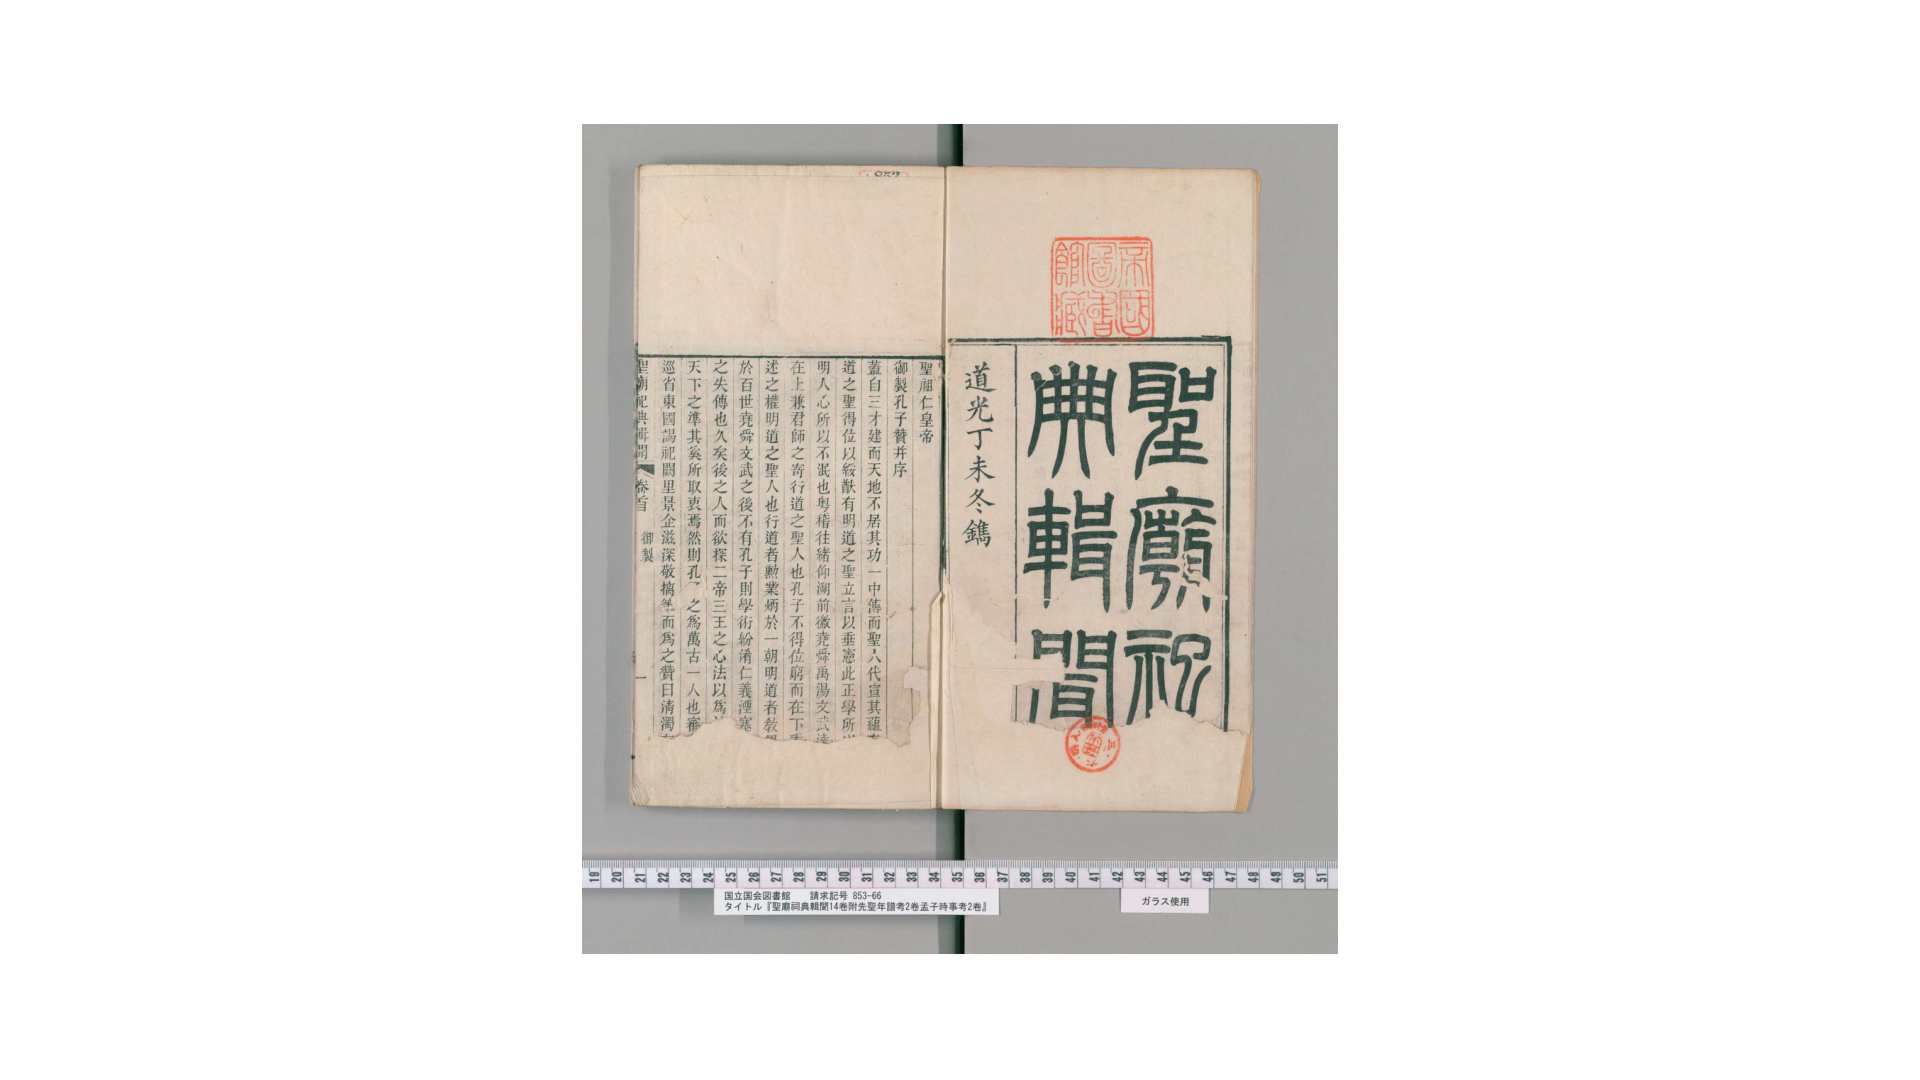 帝國
圖書
館藏
聖廟祀
典輯聞
道光丁未冬鐫
聖祖仁皇帝
御製孔子贊并序
蓋自三才建而天地不居其功一中傳而聖人代宣其蘊
道之聖得位以綏猷有明道之聖立言以垂憲此正學所
明人心所以不泯也粤稽往緒仰溯前徽堯舜禹湯文武
在上兼君師之寄行道之聖人也孔子不得位窮而在下
述之權明道之聖人也行道者勲業炳於一朝明道者敎
於百世堯舜文武之後不有孔子則學術紛淆仁義湮塞
之失傳也久矣後之人而欲探二帝三王之心法以爲
天下之準其奚所取衷焉然則孔 之爲萬古一人也審
巡省東國謁祀闕里景企滋深敬摛筆而爲之贊曰清濁
聖廟祀典輯聞 卷首 御製 一
国立国会図書館 請求記号 853-66
タイトル『聖廟祠典輯聞14卷附先聖年譜考2卷孟子時事考2卷』
ガラス使用
19 20 21 22 23 24 25 26 27 28 29 30 31 32 33 34 35 36 37 38 39 40 41 42 43 44 45 46 47 48 49 50 51